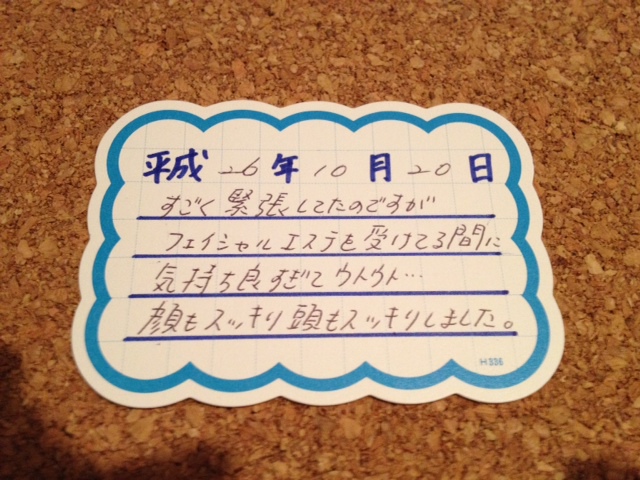 平成26年10月20日
すごく緊張してたのですが
フェイシャルエステを受けてる間に
気持ち良すぎてウトウト…
顔もスッキリ頭もスッキリしました。
H336